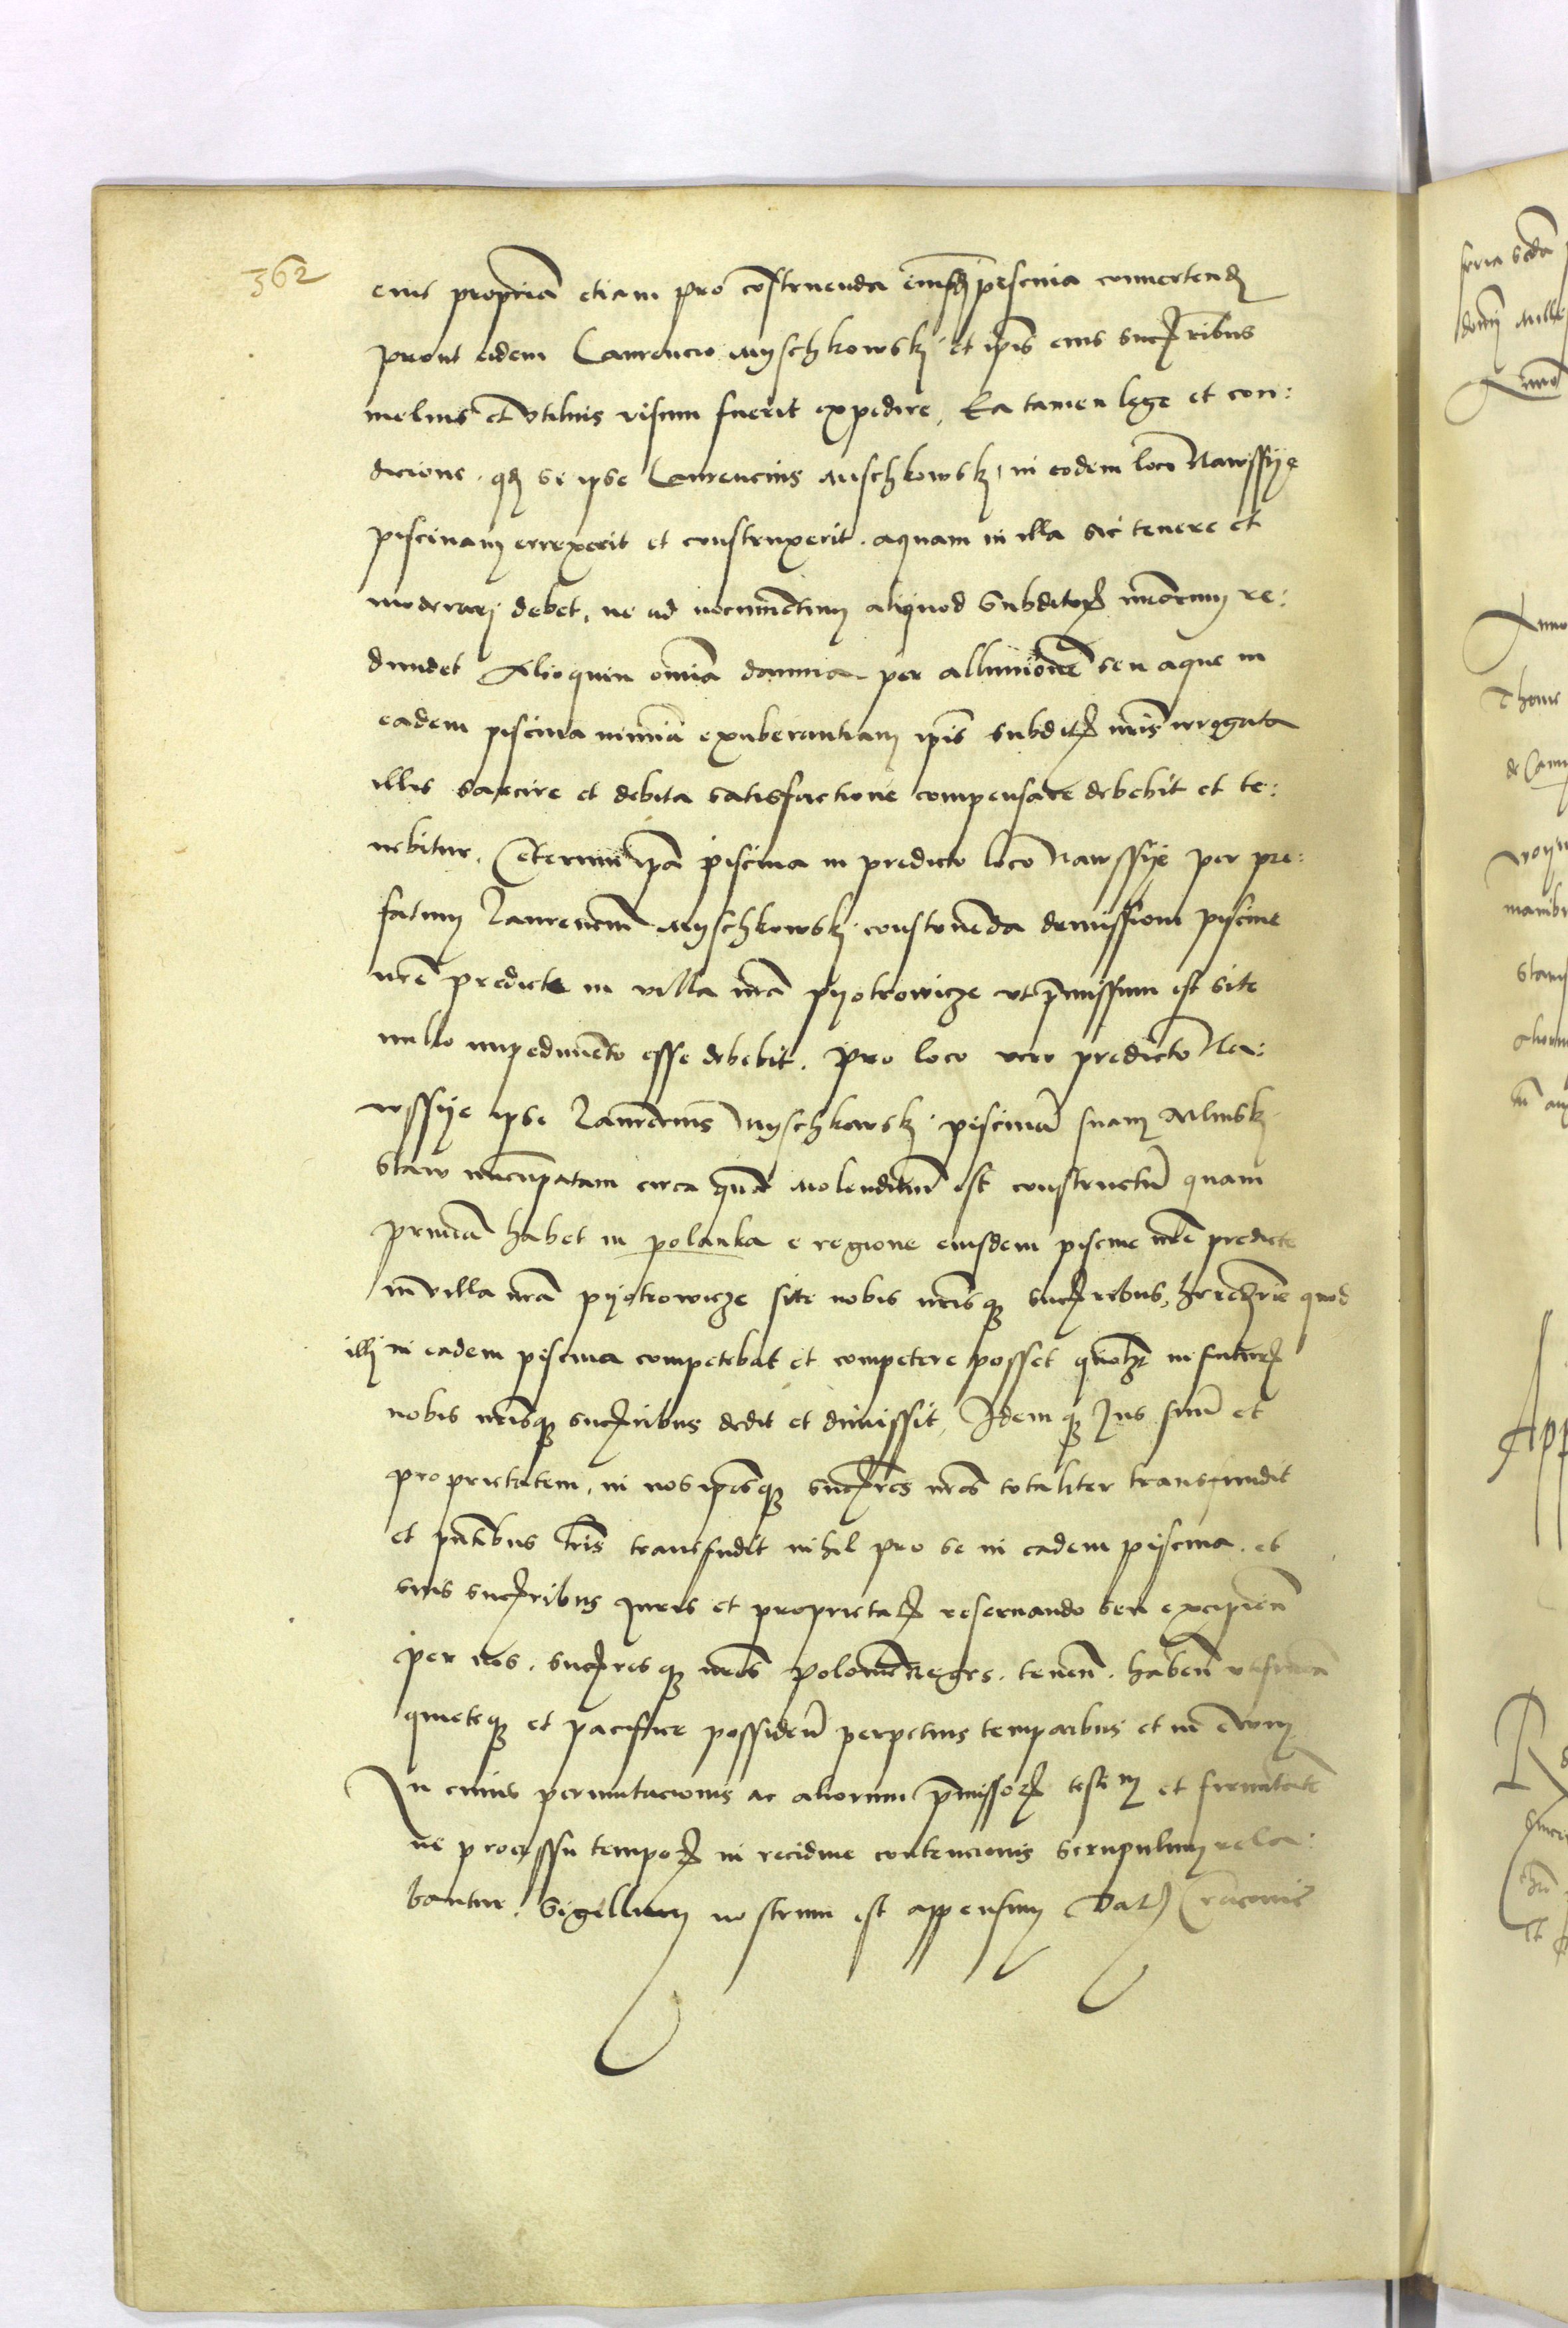 362
eius propriã etiam pro cõstruenda eiusdẽ piscina conuertend
prout eidem Laurencio Myschkowskj et ipĩs eius succẽribus
melius et vtilius visum fuerit expedire, Ea tamen lege et con:
dicione, qd si ipse Laurencius Mischkowskj, in eodem loco Nawssye
piscinam errexerit et construxerit, aquam in illa sic tenere et
moderarj debet, ne ad nocumẽtum aliquod subditoR nrõrum re:
dundet Alioquin omĩa damna per alluuionẽ seu aque in
eadem piscina nimiã exuberantiam ipĩs subditis nrĩs irrogata
illis sarcire et debita satisfactione compensare debebit et te:
nebitur. Ceterum ipã piscina in predicto loco Nawssye per pre:
fatum Laurenciũ Myschkowskj construẽda demissioni piscine
nrẽ predicte in villa nrã pyotrowicze vt p̃missum est site
nullo impedimẽto esse debebit. Pro loco vero predicto Na:
wssye ipse Laurẽcius Myschkowskj piscinã suam Mlinskj
staw nuncupatam circa quã Molendinũ est constructũ quam
primã habet in polanka e regione eiusdem piscine nrẽ predicte
in villa nrã pyotrowicze site nobis nrĩsq succẽribus, quod
illj in eadem piscina competebat et competere posset in futuR
nobis nrĩsq succẽribus dedit et dimissit, Idemq Jus suũ et
proprietatem, in nos ipõsq succẽres nrõs totaliter transfundit
et pñtibus lrĩs transfudit nihil pro se in eadem piscina, et
suis succẽribus Juris et proprietatis reseruando seu excipieñ
per nos, succẽresq nrõs polonie Reges, teneñ, habeñ
quieteq et pacifice possideñ perpetuis temporibus et in ewum
In cuius permutacionis ac aliorum p̃missoR testiм et firmitatẽ
ne processu tempoR in recidiue contencionis scrupulum rela:
bantur. Sigillum nostrum est appensum Dat Cracouie